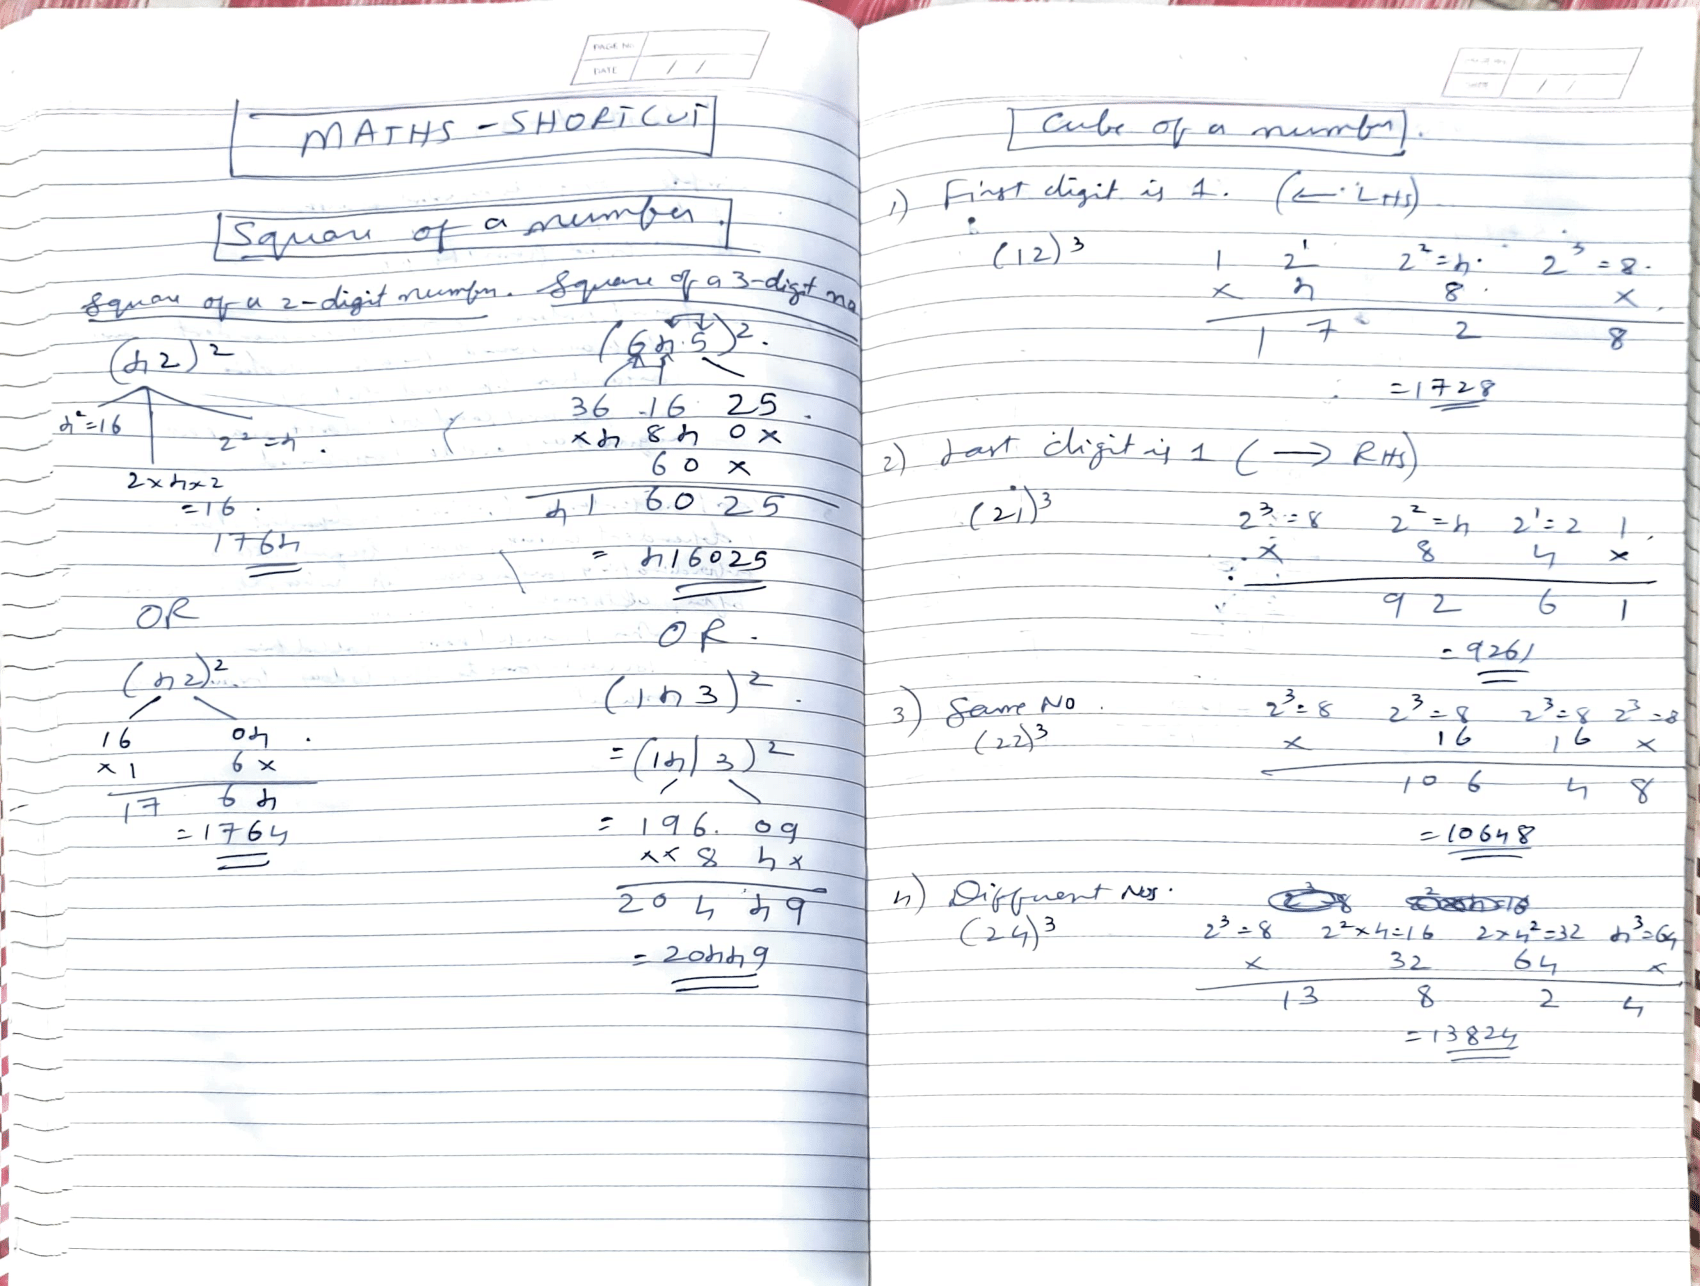 PAGE NO
DATE / /
MATHS - SHORTCUT
Square of a number.
Square of a 2-digit number.
(42)²
4²=16
2²=4.
2x4x2
=16.
1764
OR
(42)²
16 04.
x 1 6 x
17 6 4
=1764
Square of a 3-digit no
(645)².
36 16 25.
x4 84 0x
60 x
41 60 25
= 416025
OR.
(143)².
=(14|3)²
= 196. 09
xx 8 4x
20 4 49
= 20449
DATE / /
Cube of a number.
1) First digit is 1. (← LHS)
(12)³ 1 2¹ 2²=4. 2³=8.
x 4 8. x
1 7 2 8
=1728
2) Last digit is 1 (→ RHS)
(21)³ 2³=8 2²=4 2¹=2 1
x 8 4 x
9 2 6 1
=9261
3) Same No.
(22)³ 2³=8 2³=8 2³=8 2³=8
x 16 16 x
10 6 4 8
=10648
4) Different Nos.
(24)³ 2³=8 2²x4=16 2x4²=32 4³=64
x 32 64 x
13 8 2 4
=13824